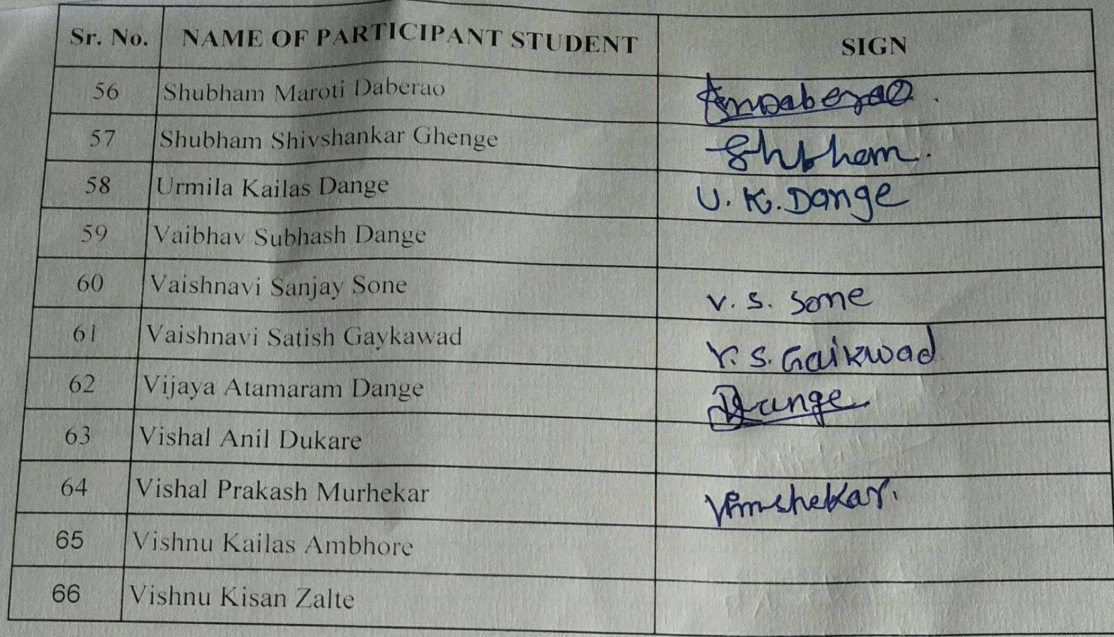 Sr. No. NAME OF PARTICIPANT STUDENT SIGN
56 Shubham Maroti Daberao
57 Shubham Shivshankar Ghenge Shubham.
58 Urmila Kailas Dange U. K. Dange
59 Vaibhav Subhash Dange
60 Vaishnavi Sanjay Sone V. S. Sone
61 Vaishnavi Satish Gaykawad V. S. Gaikwad
62 Vijaya Atamaram Dange Dange
63 Vishal Anil Dukare
64 Vishal Prakash Murhekar
65 Vishnu Kailas Ambhore
66 Vishnu Kisan Zalte